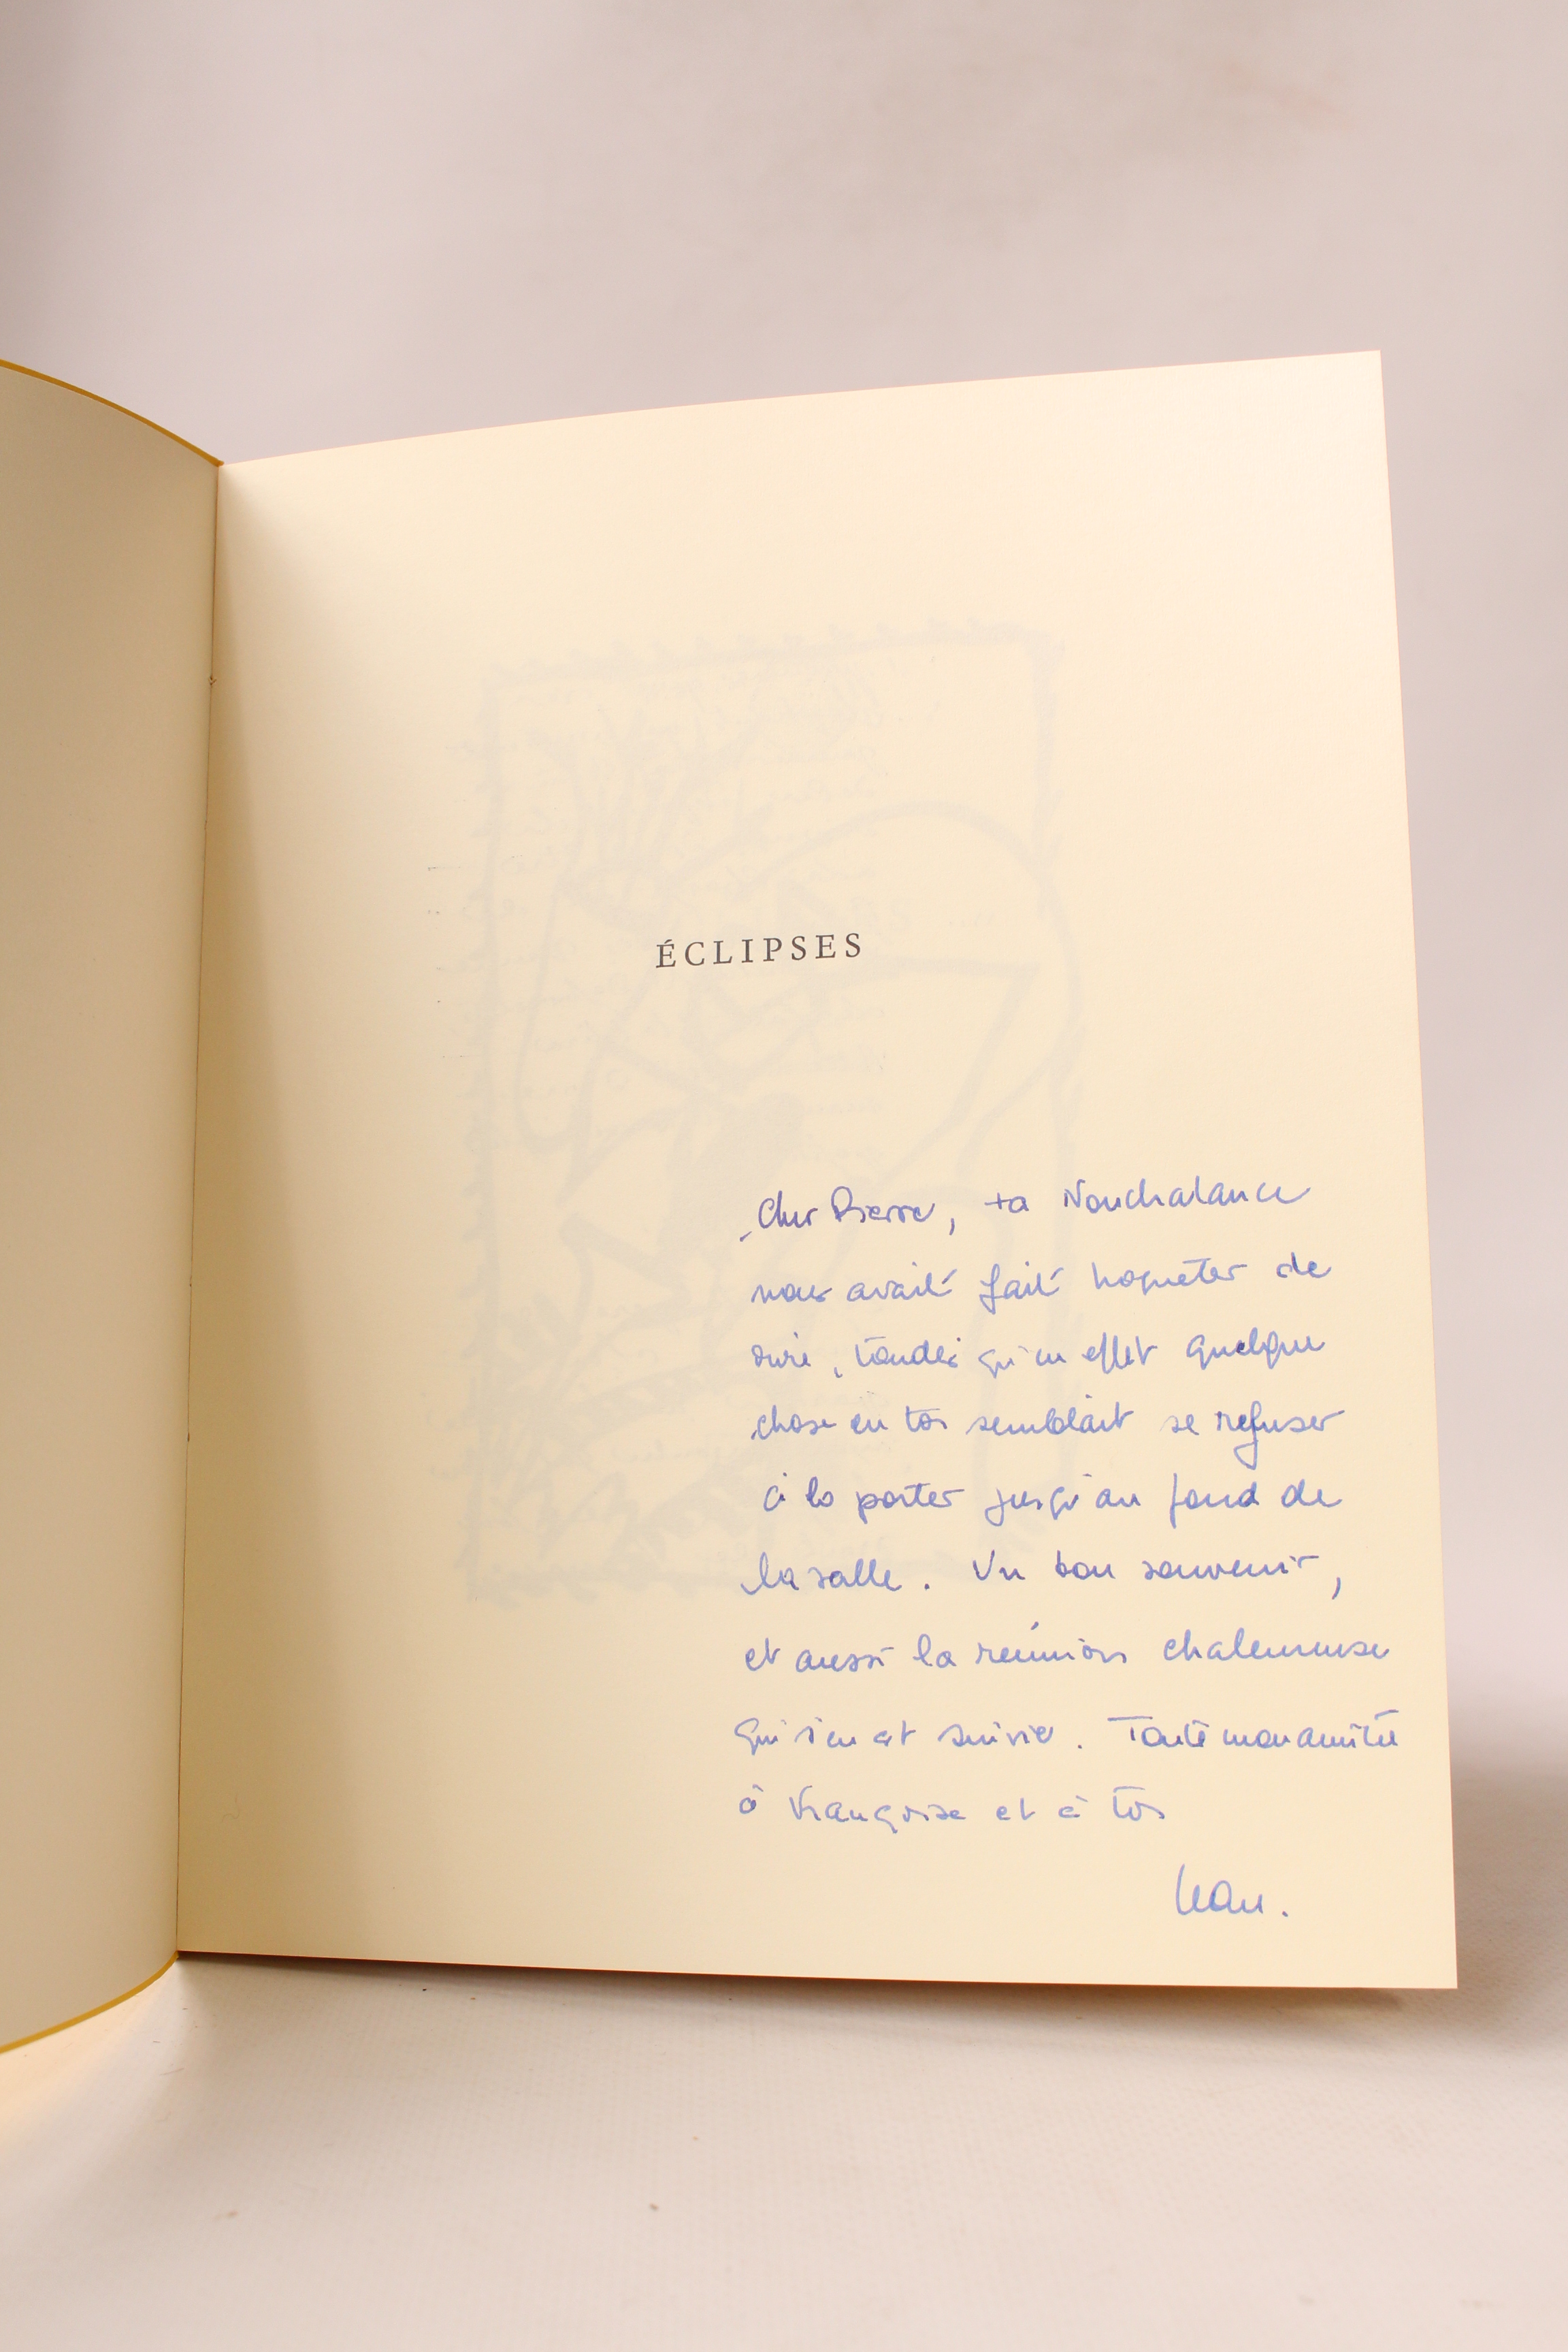 ÉCLIPSES
Cher Pierre, ta Nonchalance
nous avait fait hoqueter de
rire, tandis qu'en effet quelque
chose en toi semblait se refuser
à la porter jusqu'au fond de
la salle. Un bon souvenir,
et aussi la réunion chaleureuse
qui s'en est suivie. Toute mon amitié
à Françoise et à toi
Jean.